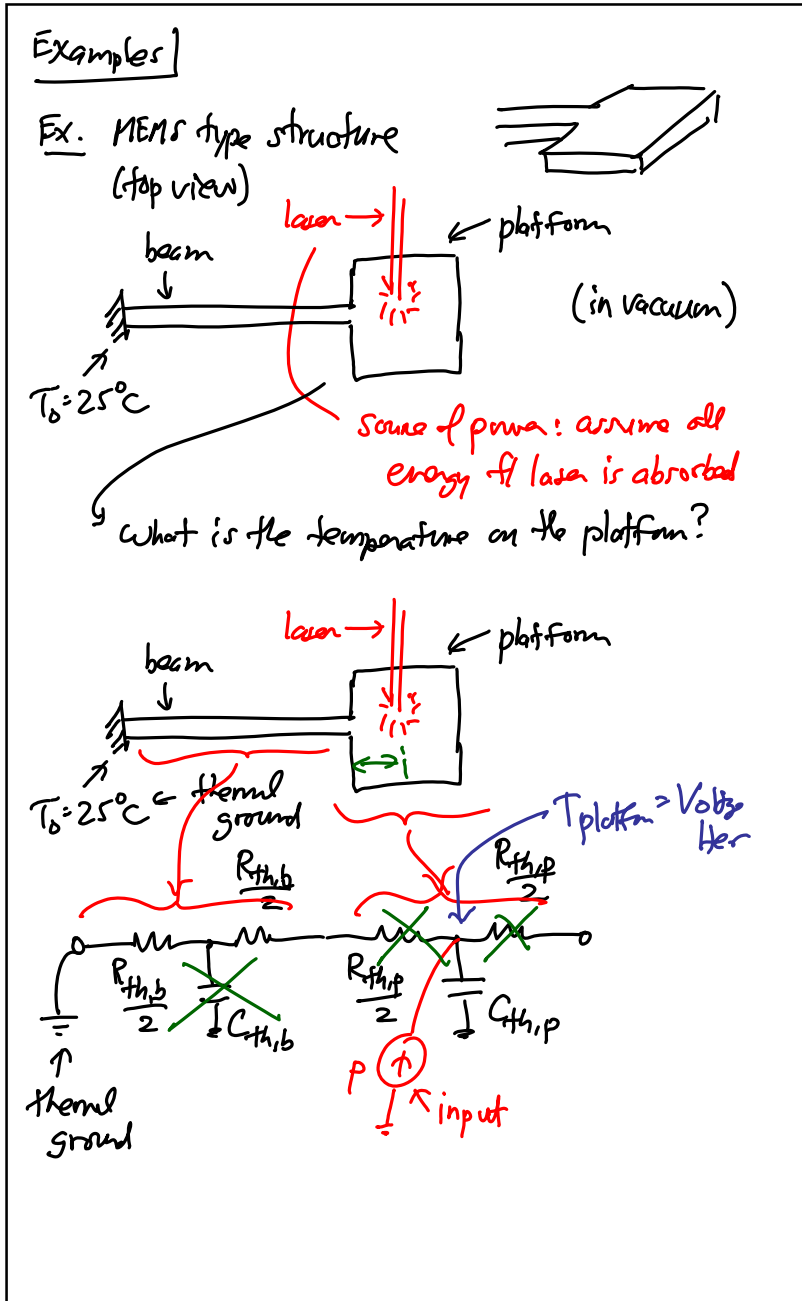 Examples
Ex. MEMS type structure
(top view)
laser →
← platform
beam
(in vacuum)
T₀ = 25°C
source of power: assume all
energy f/ laser is absorbed
What is the temperature on the platform?
laser →
← platform
beam
i
T₀ = 25°C ← thermal
ground
T platform = Voltage
Here
R_{th,b}/2
R_{th,p}/2
R_{th,b}/2
C_{th,b}
R_{th,p}/2
C_{th,p}
P
input
thermal
ground